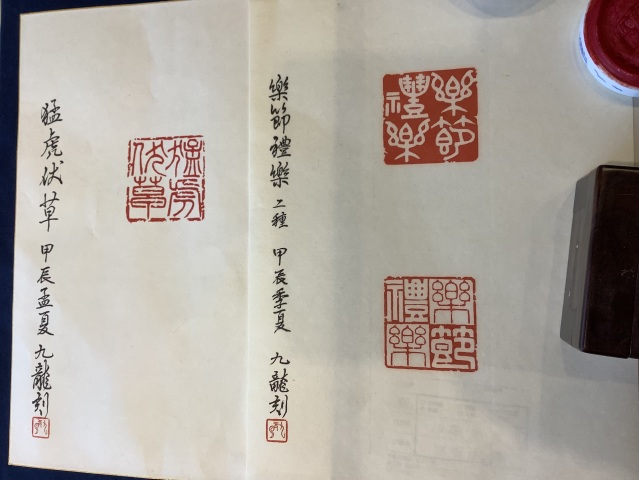 樂節禮樂
樂節禮樂
樂節禮樂 二種 甲辰季夏 九龍刻
猛虎伏草
猛虎伏草 甲辰孟夏 九龍刻